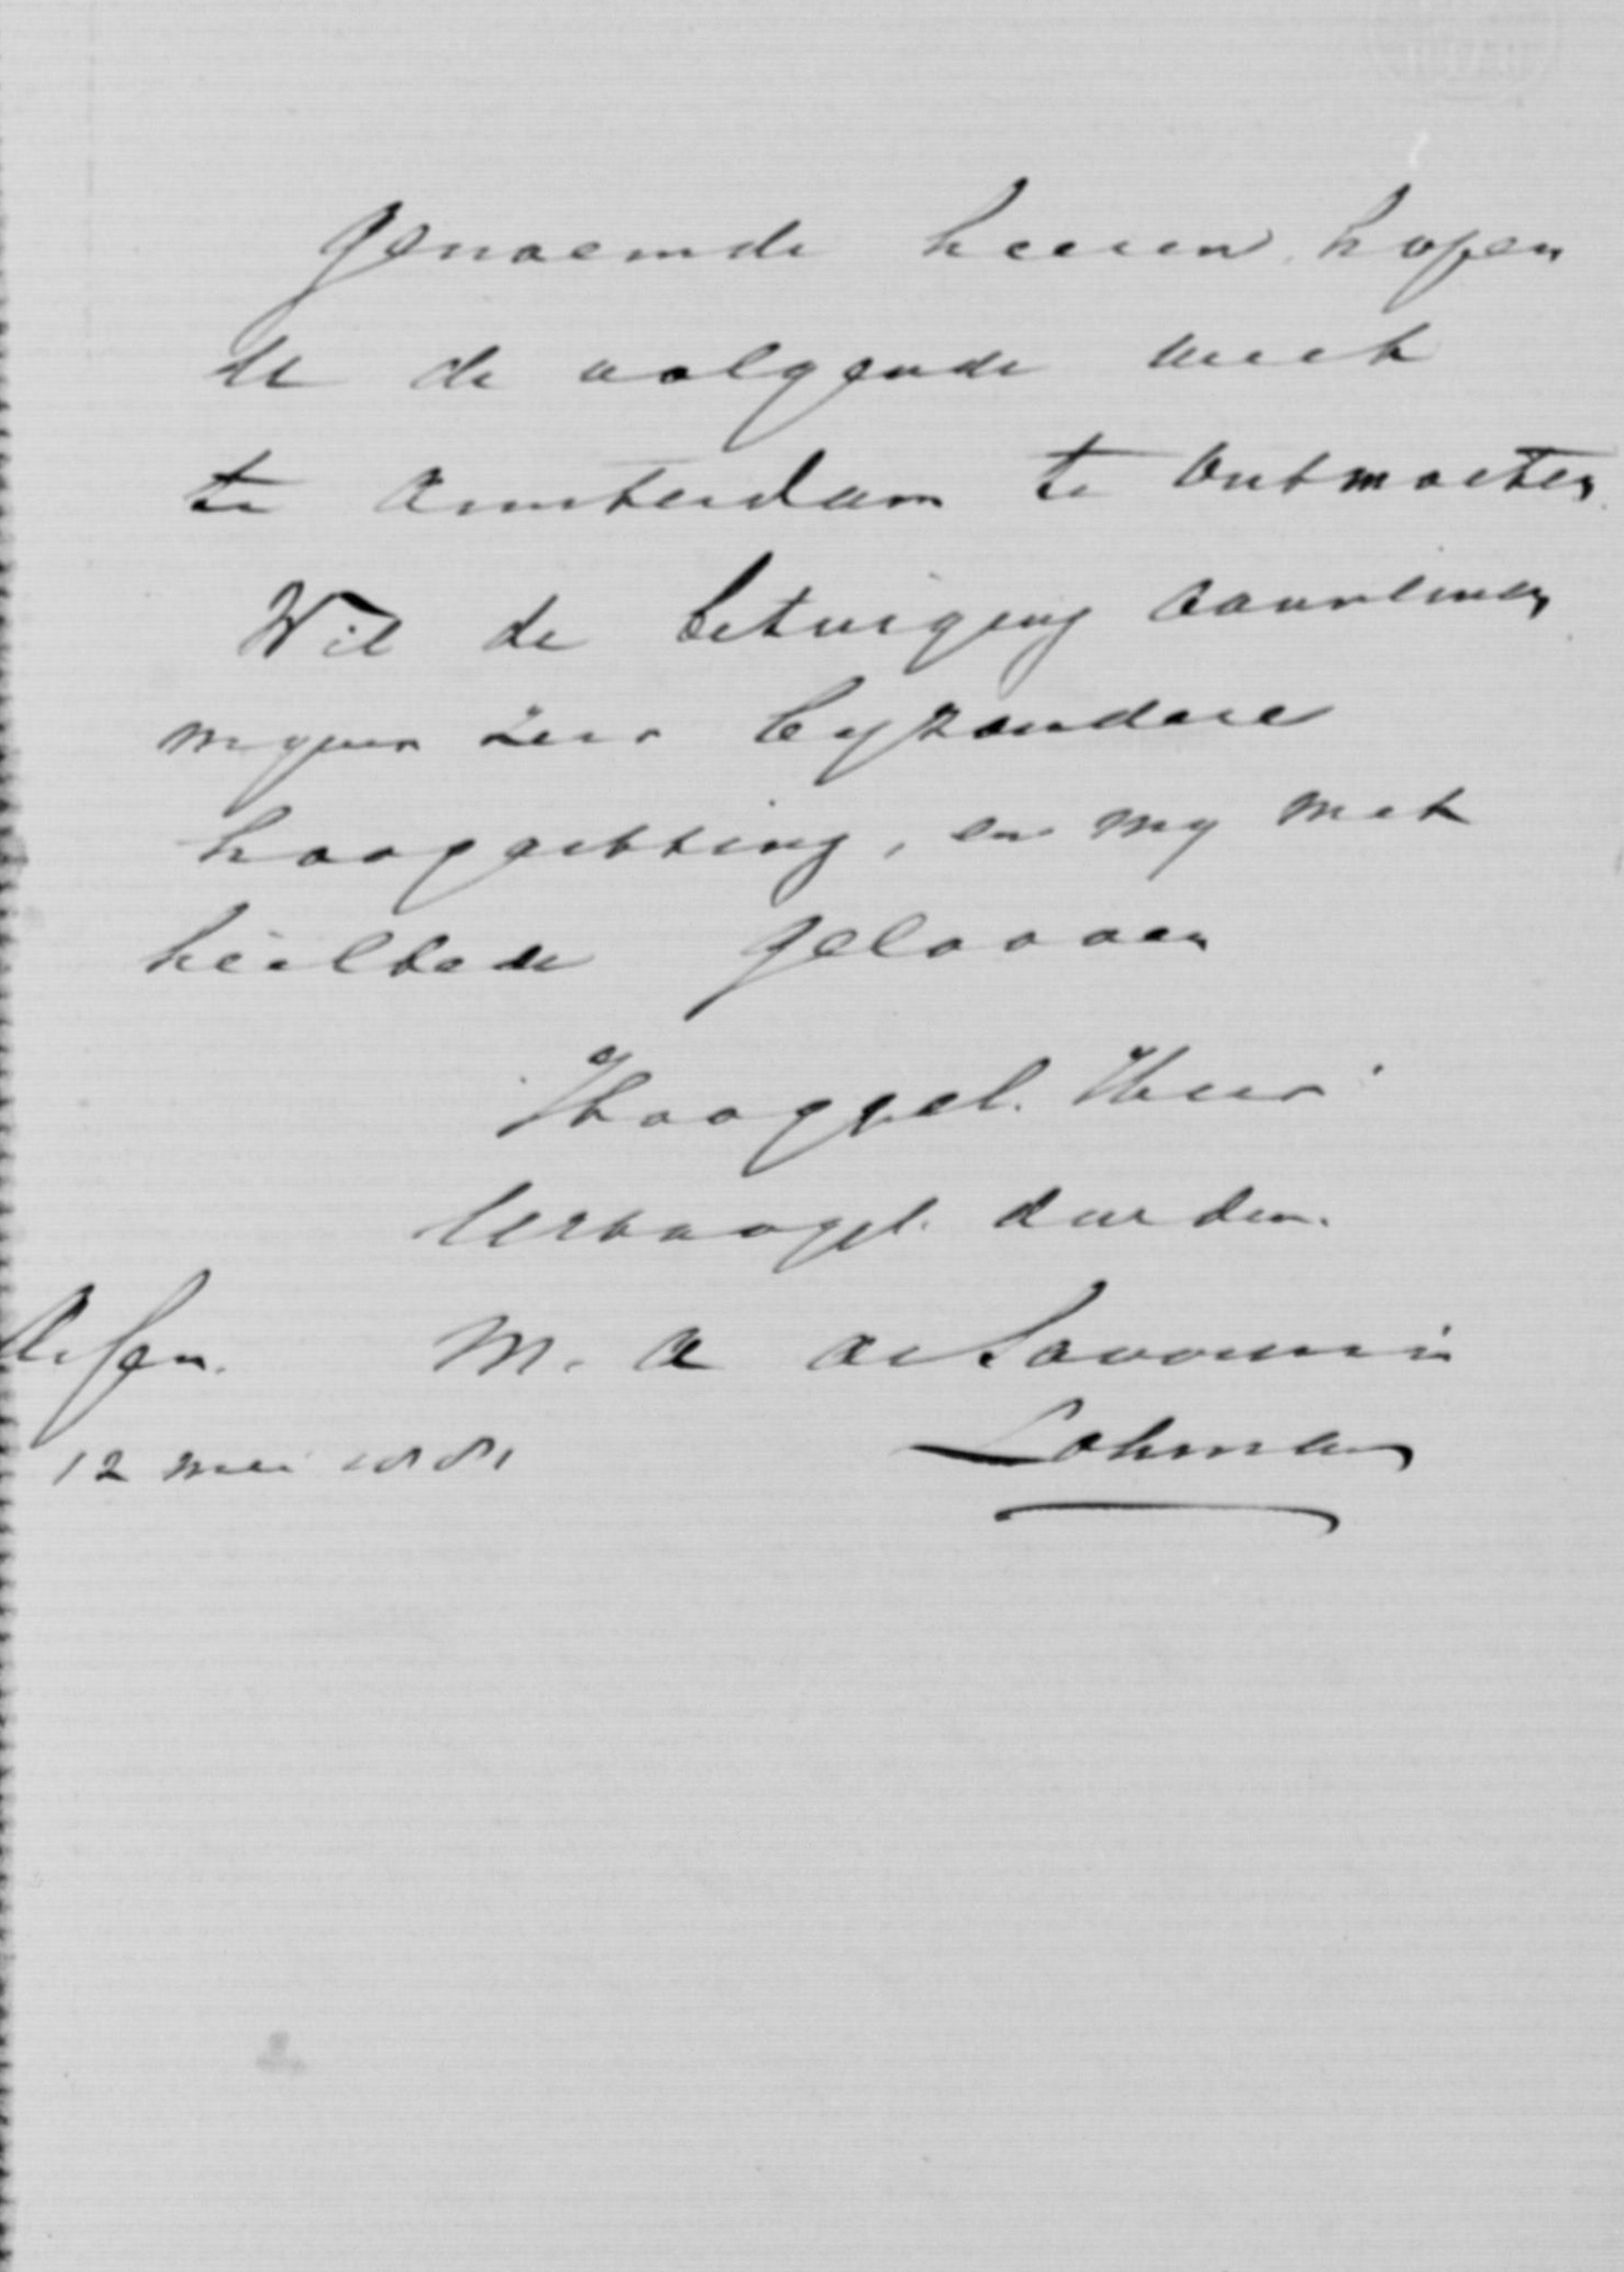 Genoemde heeren hopen
U de volgende week
te Amsterdam te ontmoeten.
Wil de betuiging aannemen
mijner zeer byzondere
hoogachting, en my met
heilbede gelooven
Hooggel. Heer
Uerhoogel. dw den.
M. A de Savornin
Lohman
12 mei 1881